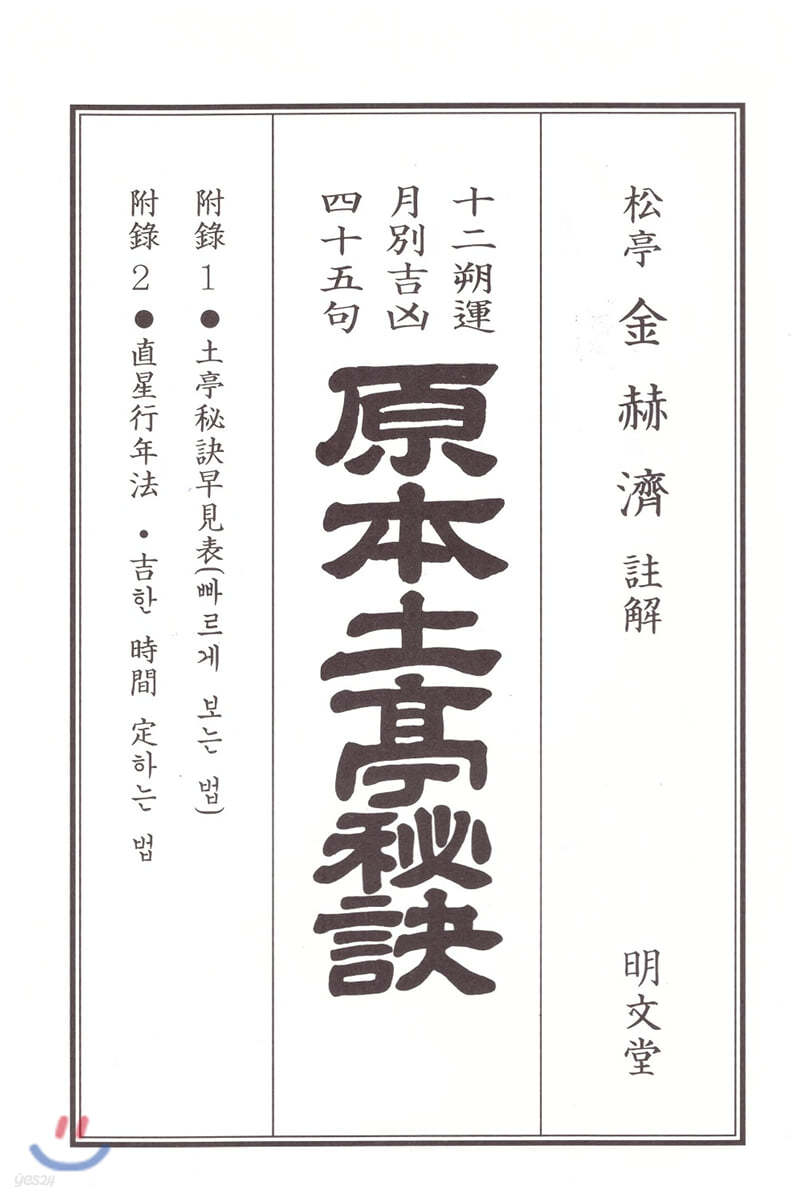 松亭 金赫濟 註解
明文堂
十二朔運
月別吉凶
四十五句
原本土亭秘訣
附錄 1 ● 土亭秘訣早見表(빠르게 보는 법)
附錄 2 ● 直星行年法 • 吉한 時間 定하는 법
yes24